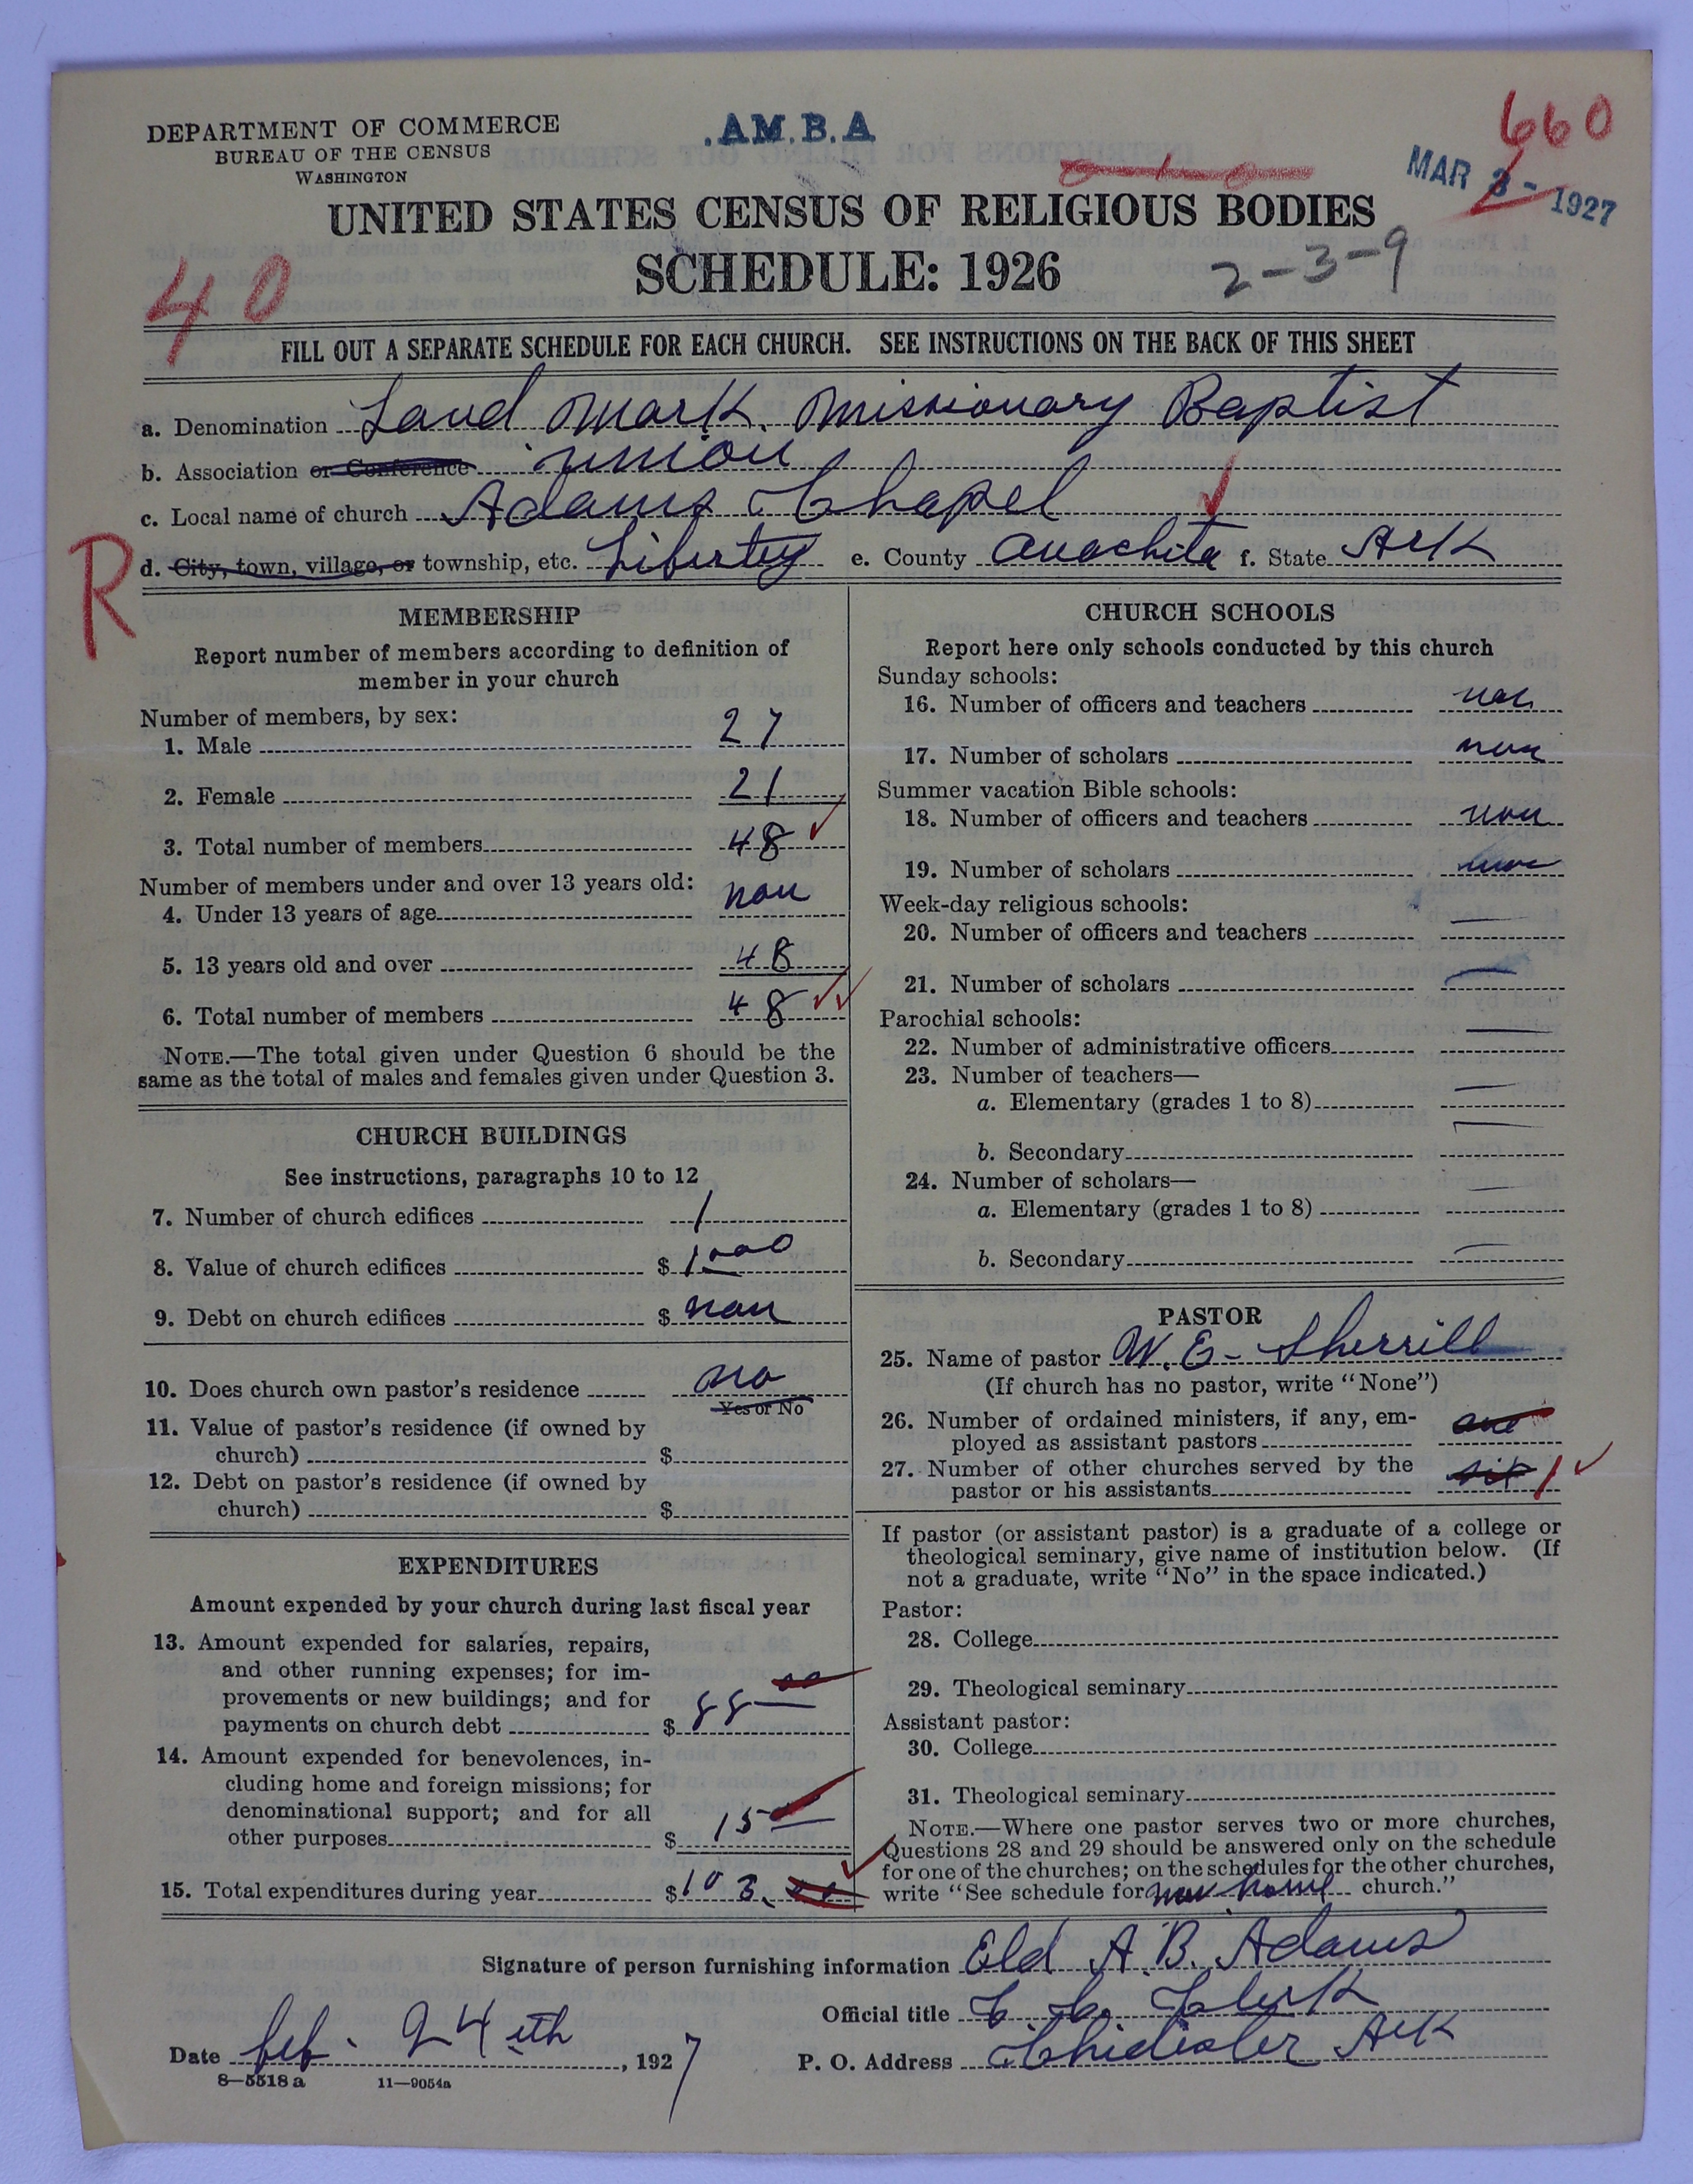 DEPARTMENT OF COMMERCE
BUREAU OF THE CENSUS
WASHINGTON
.AM.B.A
660
MAR 3 - 1927
UNITED STATES CENSUS OF RELIGIOUS BODIES
SCHEDULE: 1926
2-3-9
40
FILL OUT A SEPARATE SCHEDULE FOR EACH CHURCH. SEE INSTRUCTIONS ON THE BACK OF THIS SHEET
a. Denomination Land Mark. Missionary Baptist
b. Association or Conference union
c. Local name of church Adams Chapel
R
d. City, town, village, or township, etc. Liberty e. County Ouachita f. State Ark
MEMBERSHIP
Report number of members according to definition of
member in your church
Number of members, by sex:
1. Male 27
2. Female 21
3. Total number of members 48
Number of members under and over 13 years old:
4. Under 13 years of age non
5. 13 years old and over 48
6. Total number of members 48
NOTE.—The total given under Question 6 should be the
same as the total of males and females given under Question 3.
CHURCH BUILDINGS
See instructions, paragraphs 10 to 12
7. Number of church edifices 1
8. Value of church edifices $ 1000
9. Debt on church edifices $ non
10. Does church own pastor's residence no
Yes or No
11. Value of pastor's residence (if owned by
church) $
12. Debt on pastor's residence (if owned by
church) $
EXPENDITURES
Amount expended by your church during last fiscal year
13. Amount expended for salaries, repairs,
and other running expenses; for im-
provements or new buildings; and for
payments on church debt $ 88
14. Amount expended for benevolences, in-
cluding home and foreign missions; for
denominational support; and for all
other purposes $ 15
15. Total expenditures during year $ 103.
CHURCH SCHOOLS
Report here only schools conducted by this church
Sunday schools:
16. Number of officers and teachers non
17. Number of scholars non
Summer vacation Bible schools:
18. Number of officers and teachers non
19. Number of scholars non
Week-day religious schools:
20. Number of officers and teachers
21. Number of scholars
Parochial schools:
22. Number of administrative officers
23. Number of teachers—
a. Elementary (grades 1 to 8)
b. Secondary
24. Number of scholars—
a. Elementary (grades 1 to 8)
b. Secondary
PASTOR
25. Name of pastor W. E. Sherrill
(If church has no pastor, write "None")
26. Number of ordained ministers, if any, em-
ployed as assistant pastors one
27. Number of other churches served by the
pastor or his assistants six 1
If pastor (or assistant pastor) is a graduate of a college or
theological seminary, give name of institution below. (If
not a graduate, write "No" in the space indicated.)
Pastor:
28. College
29. Theological seminary
Assistant pastor:
30. College
31. Theological seminary
NOTE.—Where one pastor serves two or more churches,
Questions 28 and 29 should be answered only on the schedule
for one of the churches; on the schedules for the other churches,
write "See schedule for new home church."
Signature of person furnishing information Eld A. B. Adams
Official title C. C. Clerk
Date feb. 24th, 1927
P. O. Address Chidester Ark
8—5518 a 11—9054a